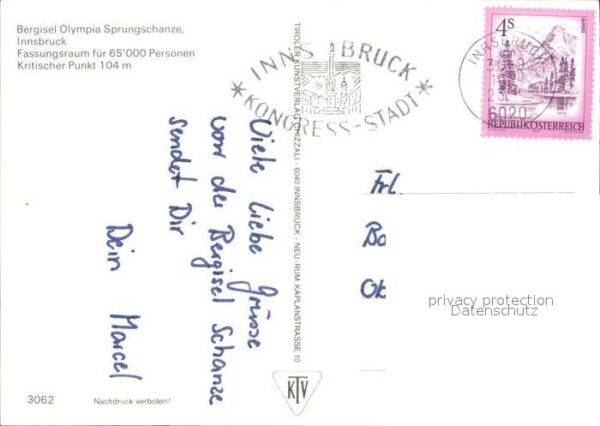 Bergisel Olympia Sprungschanze,
Innsbruck
Fassungsraum für 65'000 Personen
Kritischer Punkt 104 m
INNSBRUCK
*KONGRESS-STADT*
INNSBRUCK
6020
4S
REPUBLIK ÖSTERREICH
TIROLER KUNSTVERLAG CHIZZALI - 6040 INNSBRUCK - NEU-RUM KAPLANSTRASSE 10
Viele liebe Grüsse
von der Bergisel Schanze
sendet Dir
Dein Marcel
Frl
Bo
Ok
privacy protection
Datenschutz
KTV
3062
Nachdruck verboten!